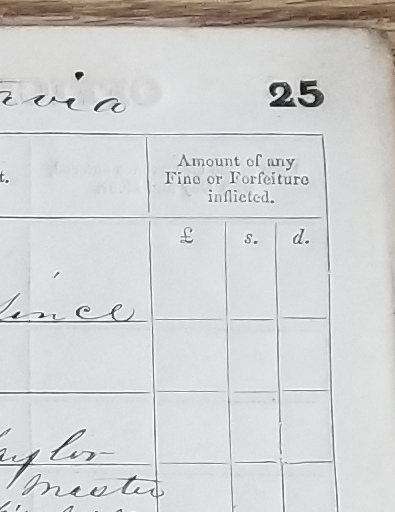 avia 25
t.
Amount of any
Fine or Forfeiture
inflicted.
£ s. d.
since
aylor
Master